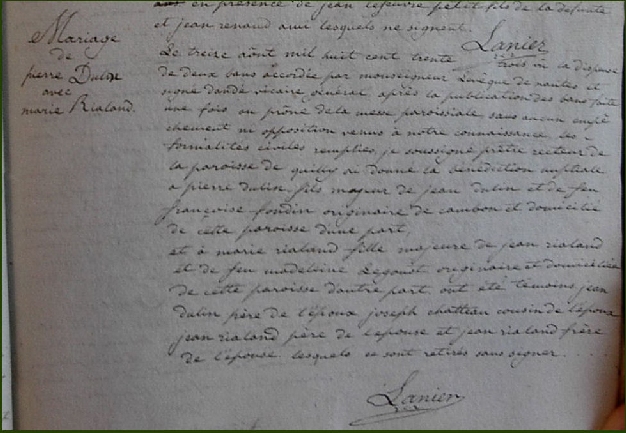 en présence de jean lefeuvre petit fils de la defunte
et jean renaud aux lesquels ne signent.
Lanier
Mariage
de
pierre Dulin
avec
marie Rialand.
Le treize aôut mil huit cent trente trois vu la dispense
de deux bans accordée par monseigneur l'évêque de nantes et
signé dandé vicaire général, après la publication des bans faite
une fois au prône de la messe paroissiale sans aucun empê
chement ni opposition venus à notre connaissance les
formalités civiles remplies, je soussigné prêtre recteur de
la paroisse de quilly ai donné la bénédiction nuptiale
a pierre dulin, fils majeur de jean dulin et de feu
françoise fondin originaire de cambon et domicilié
de cette paroisse d'une part,
et à marie rialand fille majeure de jean rialand
et de feu madeleine Legoust originaire et domiciliée
de cette paroisse d'autre part, ont été témoins jean
dulin père de l'époux joseph chatteau cousin de l'époux
jean rialand père de l'épouse et jean rialand frère
de l'épouse lesquels se sont retirés sans signer....
Lanier